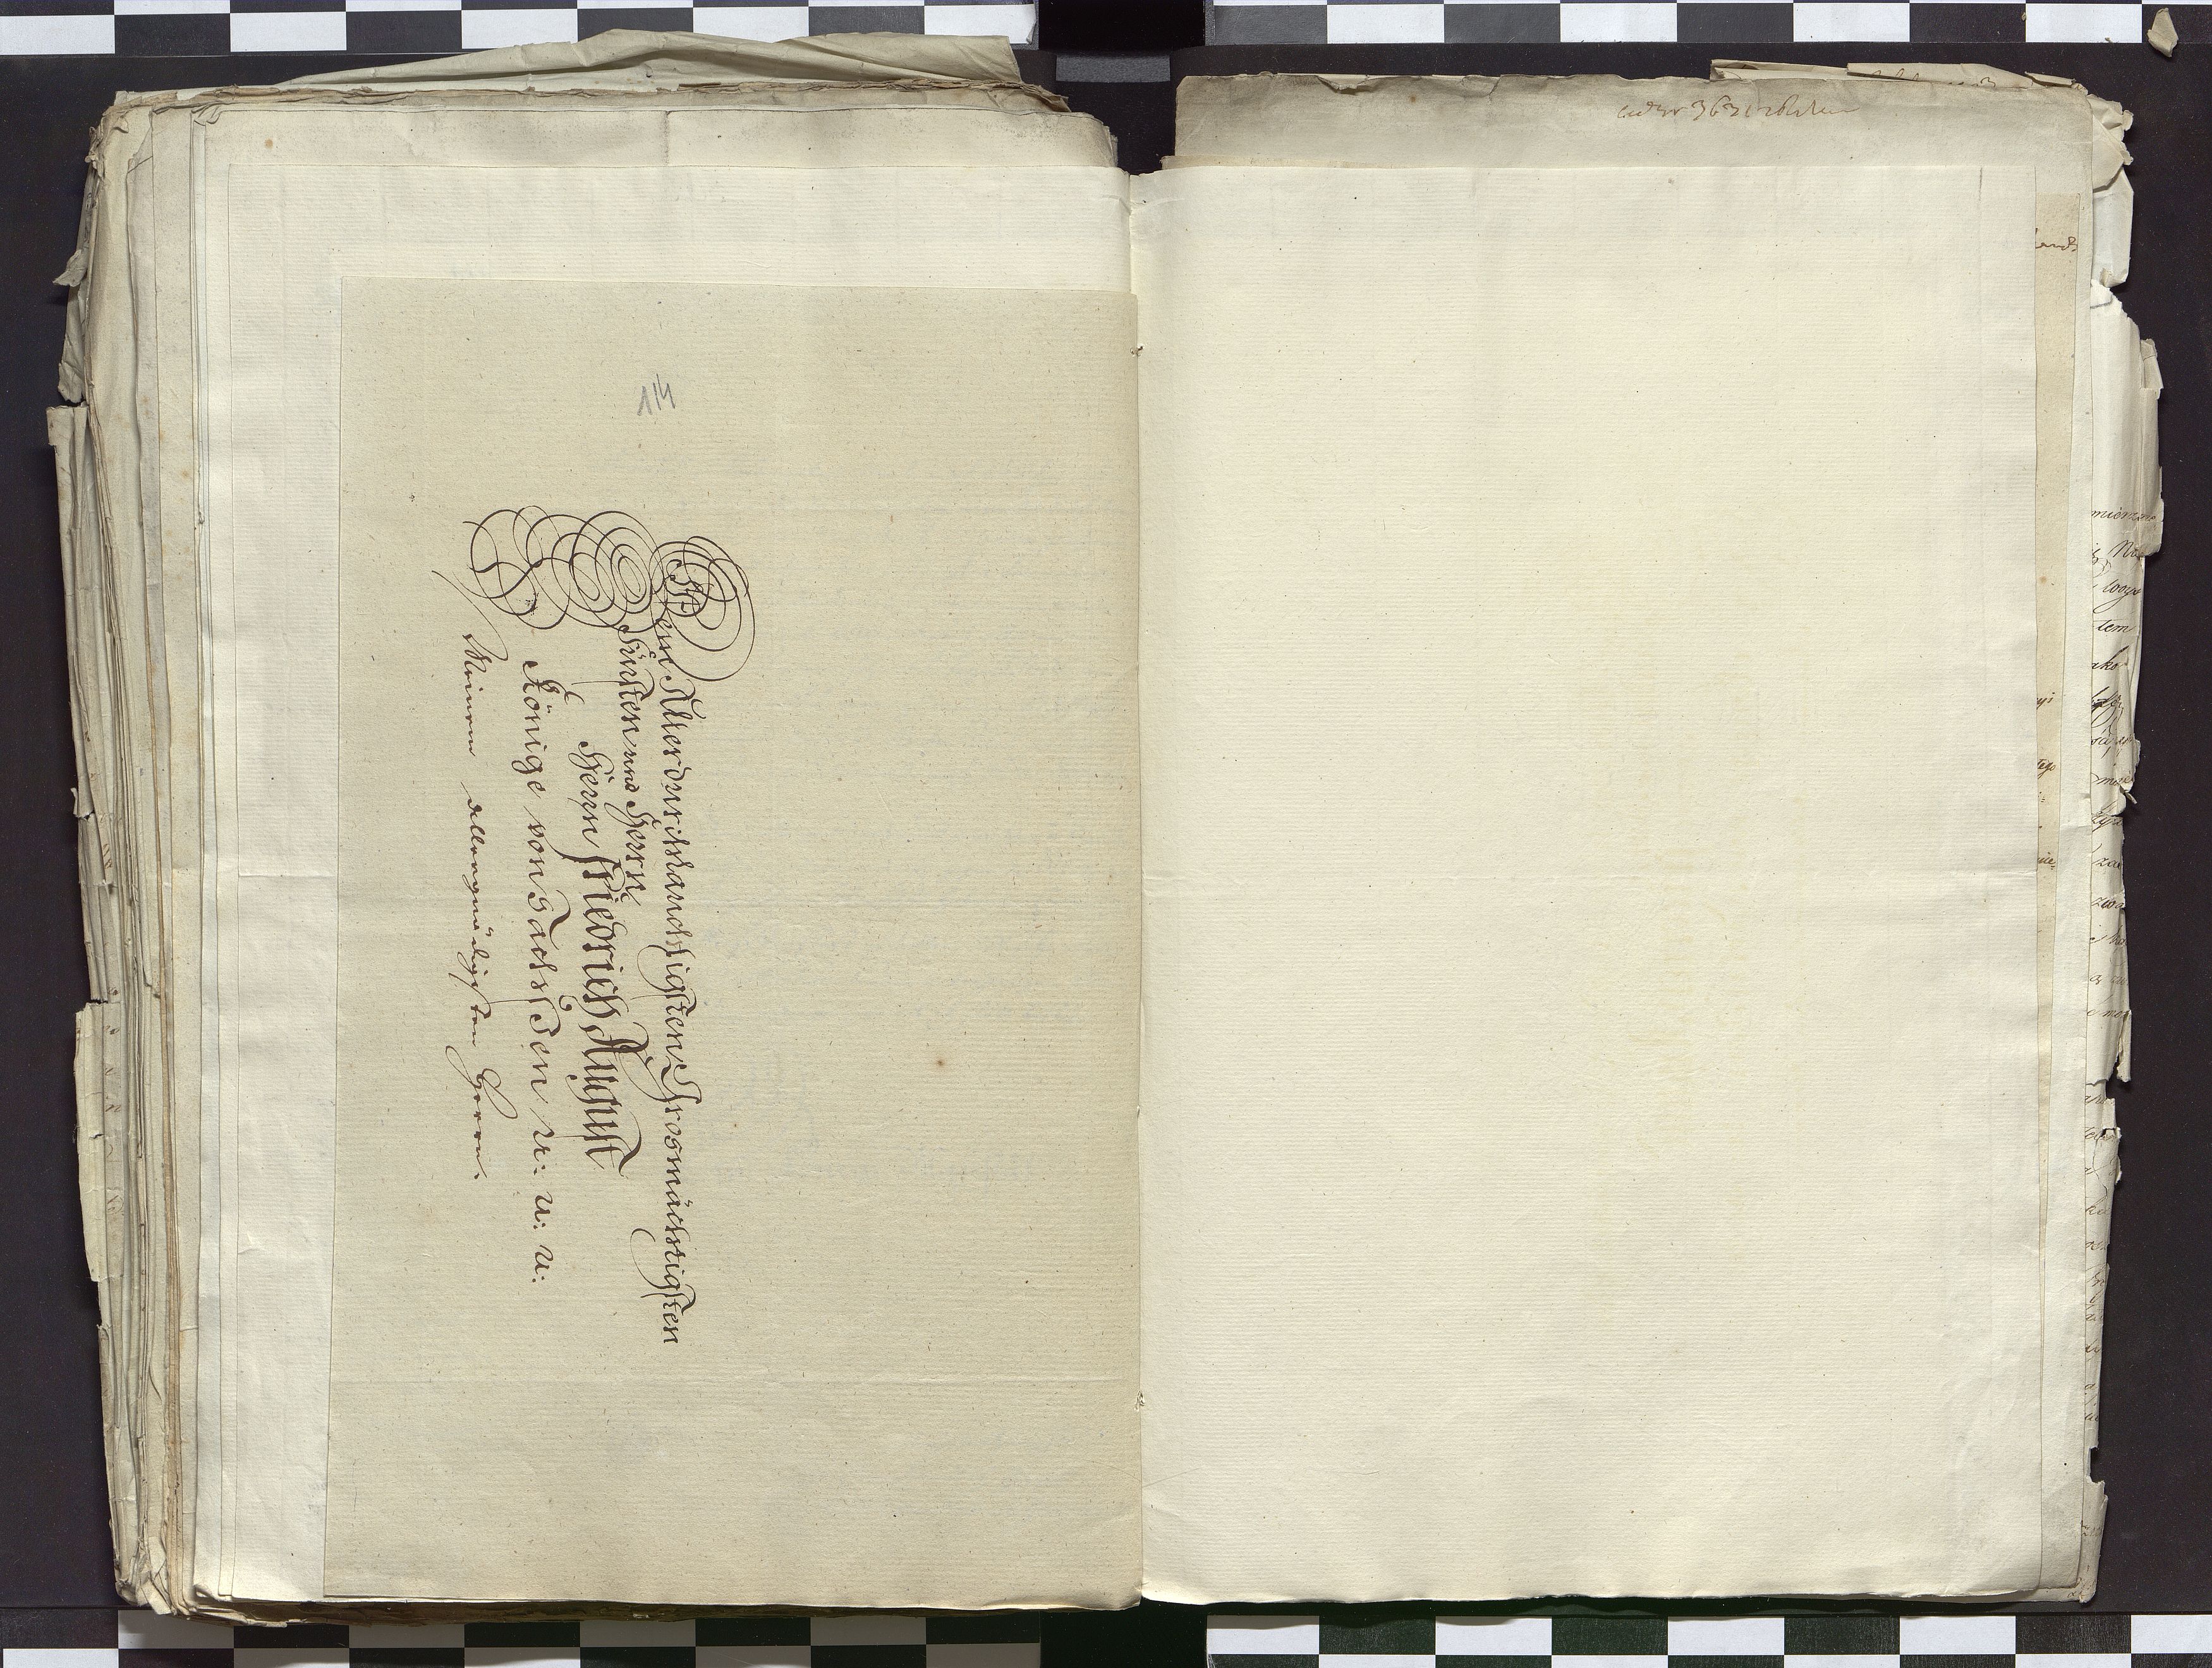 114
Dem Allerdurchlauchtigsten Grosmächtigsten
Fürsten und Herrn
Herrn Friedrich August
Könige von Sachssen u: u: u:
Meinem allergnädigsten Herrn.